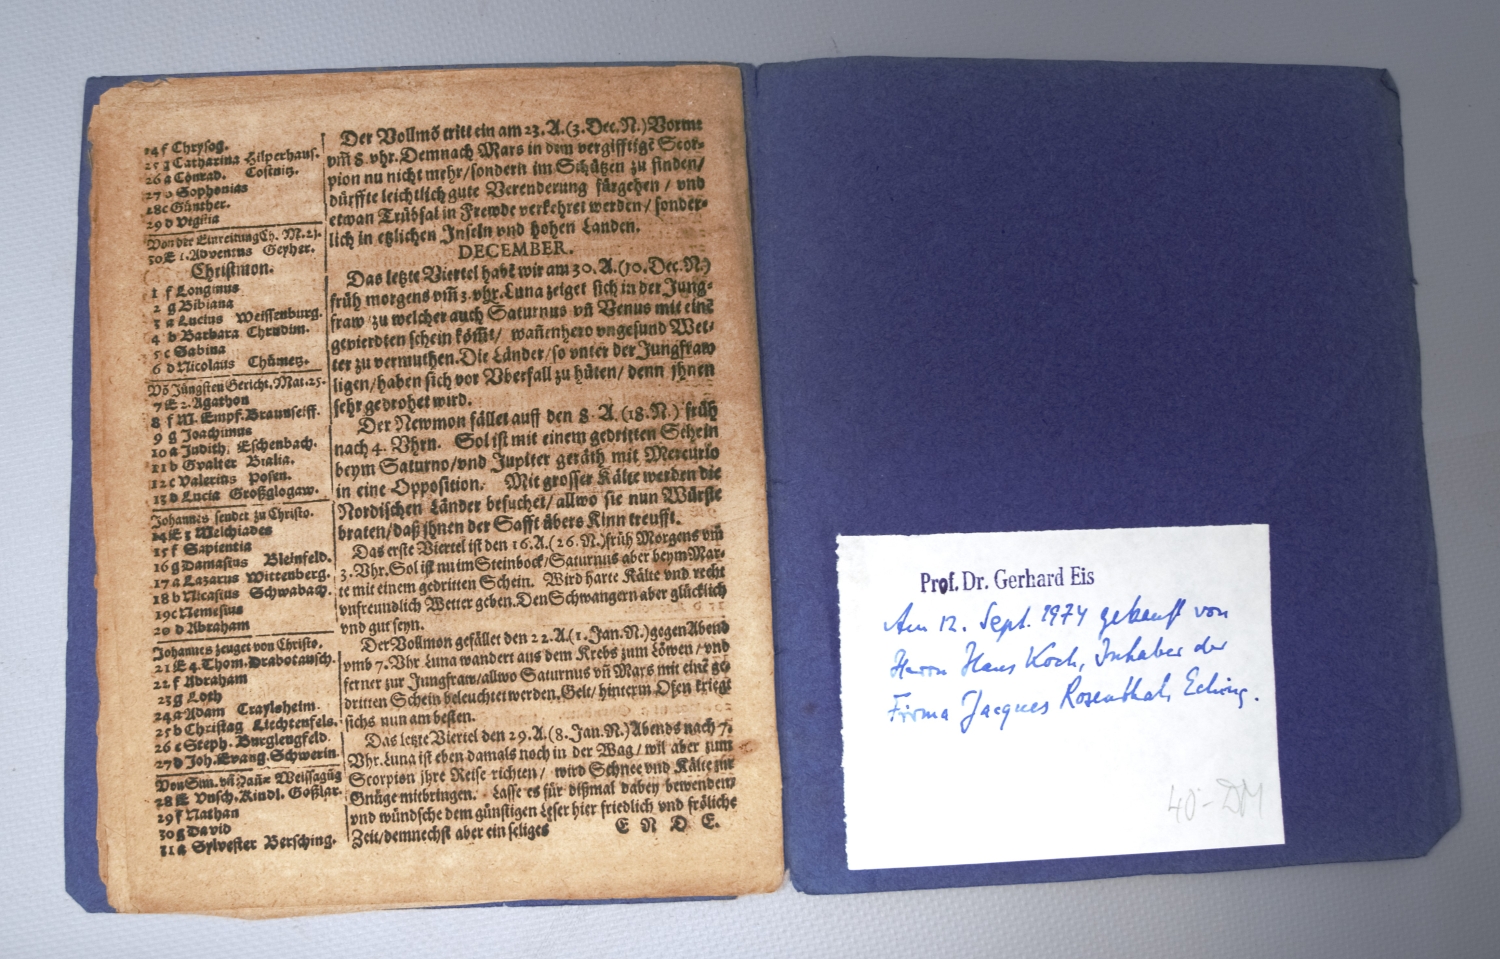 24 f Chrysog.
25 g Catharina Zilperhaus.
26 a Conrad. Costnitz.
27 Sophonias
28 c Günther.
29 d Vigilia
Von der Einreitung Ch. M. 21.
30 E 1. Adventus Geyher.
Christmon.
1 f Longinus
2 g Bibiana
3 a Lucius Weissenburg.
4 b Barbara Chrudim.
5 c Sabina
6 d Nicolaus Chümetz.
Võ Jüngsten Gericht. Mat. 25.
7 E 2. Agathon
8 f M. Empf. Braunseiff.
9 g Joachimus
10 a Judith, Eschenbach.
11 b Gvalter Bialia.
12 c Valerius Posen.
13 d Lucia Großglogaw.
Johannes sendet zu Christo.
14 E 3 Melchiades
15 f Sapientia
16 g Damasius Bleinfeld.
17 a Lazarus Wittenberg.
18 b Nicasius Schwabach.
19 c Nemesius
20 d Abraham
Johannes zeuget von Christo.
21 E 4. Thom. Drabotausch.
22 f Abraham
23 g Loth
24 a Adam Craylsheim.
25 b Christag Liechtenfels.
26 c Steph. Burglengfeld.
27 d Joh. Evang. Schwerin.
Von Sim. vñ Hañæ Weissagũg
28 E Unsch. Kindl. Goßlar.
29 f Nathan
30 g David
31 a Sylvester Bersching.
Der Vollmõ tritt ein am 23. A. (3. Dec. N.) Vormi
vm̃ 8. vhr. Demnach Mars in dem vergifftigẽ Scor-
pion nu nicht mehr/ sondern im Schützen zu finden/
dürffte leichtlich gute Verenderung fürgehen/ vnd
etwan Trübsal in Frewde verkehret werden/ sonder-
lich in etzlichen Inseln vnd hohen Landen.
DECEMBER.
Das letzte Viertel habẽ wir am 30. A. (10. Dec. N.)
früh morgens vm̃ 3. vhr. Luna zeiget sich in der Jung-
fraw/ zu welcher auch Saturnus vñ Venus mit einẽ
gevierdten schein köm̃t/ wañenhero vngesund Wet-
ter zu vermuthen. Die Länder/ so vnter der Jungfraw
ligen/ haben sich vor Vberfall zu hüten/ denn jhnen
sehr gedrohet wird.
Der Newmon fället auff den 8. A. (18. N.) früh
nach 4. Vhrn. Sol ist mit einem gedritten Schein
beym Saturno/ vnd Jupiter geräth mit Mercurio
in eine Opposition. Mit grosser Kälte werden die
Nordischen Länder besuchet/ allwo sie nun Würste
braten/ daß jhnen der Safft übers Kinn treufft.
Das erste Viertel ist den 16. A. (26. N.) früh Morgens vm̃
3. Vhr. Sol ist nu im Steinbock/ Saturnus aber beym Mar-
te mit einem gedritten Schein. Wird harte Kälte vnd recht
vnfreundlich Wetter geben. Den Schwangern aber glücklich
vnd gut seyn.
Der Vollmon gefället den 22. A. (1. Jan. N.) gegen Abend
vmb 7. Vhr Luna wandert aus dem Krebs zum Löwen/ vnd
ferner zur Jungfraw/ allwo Saturnus vñ Mars mit einẽ ge-
dritten Schein beleuchtet werden. Gelt/ hinterm Ofen kriegt
sichs nun am besten.
Das letzte Viertel den 29. A. (8. Jan. N.) Abends nach 7.
Vhr. Luna ist eben damals noch in der Wag/ wil aber zum
Scorpion jhre Reise richten/ wird Schnee vnd Kälte zur
Gnüge mitbringen. Lasse es für dißmal dabey bewenden/
vnd wündsche dem günstigen Leser hier friedlich vnd fröliche
Zeit/ demnechst aber ein seliges E N D E.
Prof. Dr. Gerhard Eis
Am 12. Sept. 1974 gekauft von
Herrn Hans Koch, Inhaber der
Firma Jacques Rosenthal, Eching.
40.- DM